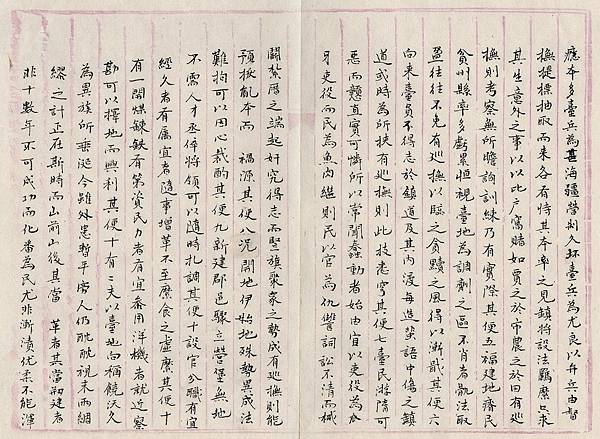 癮本多臺兵為甚海疆營制久坏臺兵為尤良以弁兵由督
撫提標抽取而來各有恃其本率之見鎮將設法羈縻只求
其生意外之事以以比户窩賭如賈之於市農之於田有巡
撫則考察無所瞻詢訓練乃有實際其便五福建地瘠民
貧州縣率多虧累恒視臺地為調劑之區不肖者骫法取
盈往往不免有巡撫以臨之貪黷之風得以漸戢其便六
向來臺員不得志於鎮道及其內渡每造蜚語中傷之鎮
道或時為所挾有巡撫則此技悉窮其便七臺民游惰可
惡而戇直實可憐所以常聞蠢動者始由官以吏役為爪
牙吏役而民為魚肉繼則民以官為仇讐詞訟不清而械
鬪紮厝之端起奸宄得志而豎旗聚衆之勢成有巡撫則能
預拔亂本而禍源其便八況開地伊始地殊勢異成法
難拘可以因心裁酌其便九新建郡邑驟立營堡無地
不需人才丞倅將領可以隨時扎調其便十設官分職有宜
經久者有屬宜者隨事增革不至縻食之虛縻其便十
有一開煤鍊鉄有第資民力者有宜畨用洋機者就近察
勘可以擇地而興利其便十有二夫以臺地向稱饒沃久
為異族所垂涎今雖外患暫平旁人仍眈眈視未雨綢
繆之計正在斯時而山前山後其當革者其當剏建者
非十數年不可成功而化番為民尤非漸漬优柔不能渾